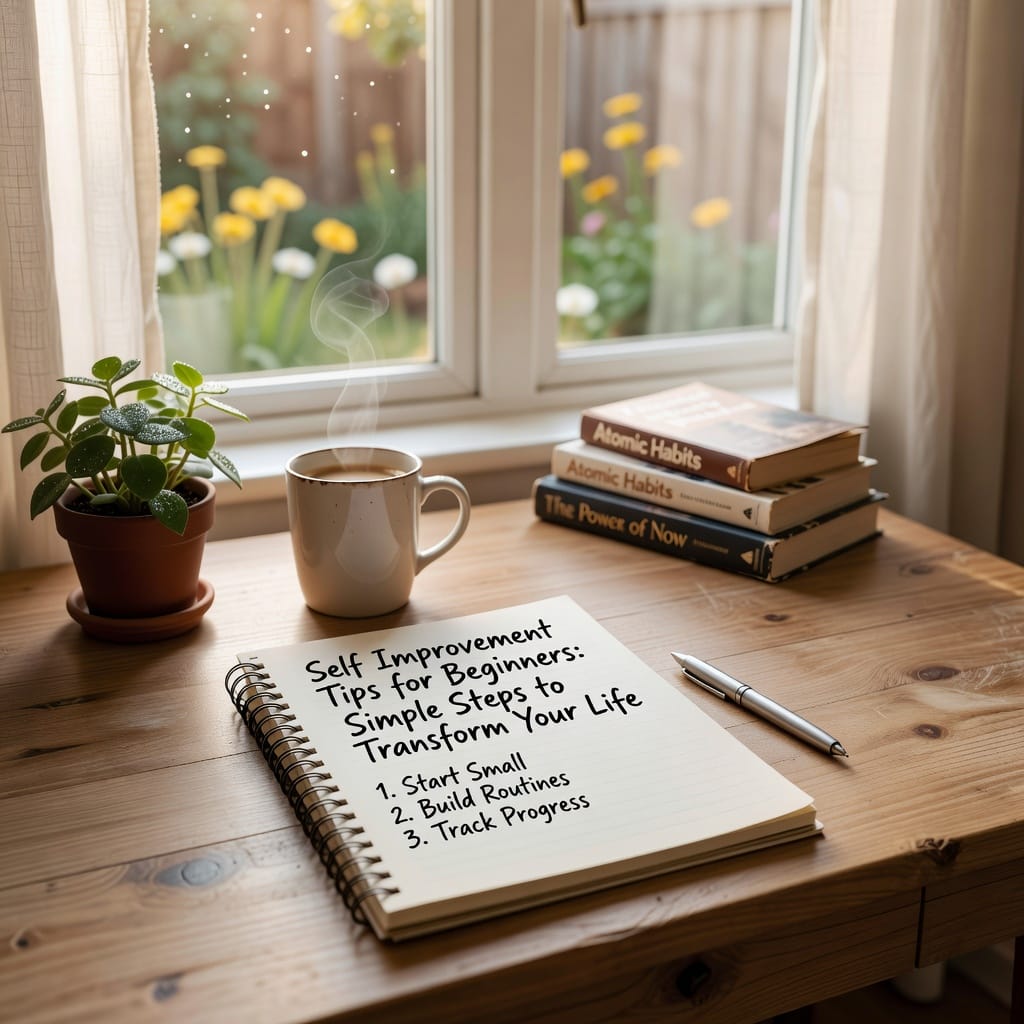 Atomic Habits
Atomic Habits
The Power of Now
Self Improvement
Tips for Beginners:
Simple Steps to
Transform Your Life
1. Start Small
2. Build Routines
3. Track Progress